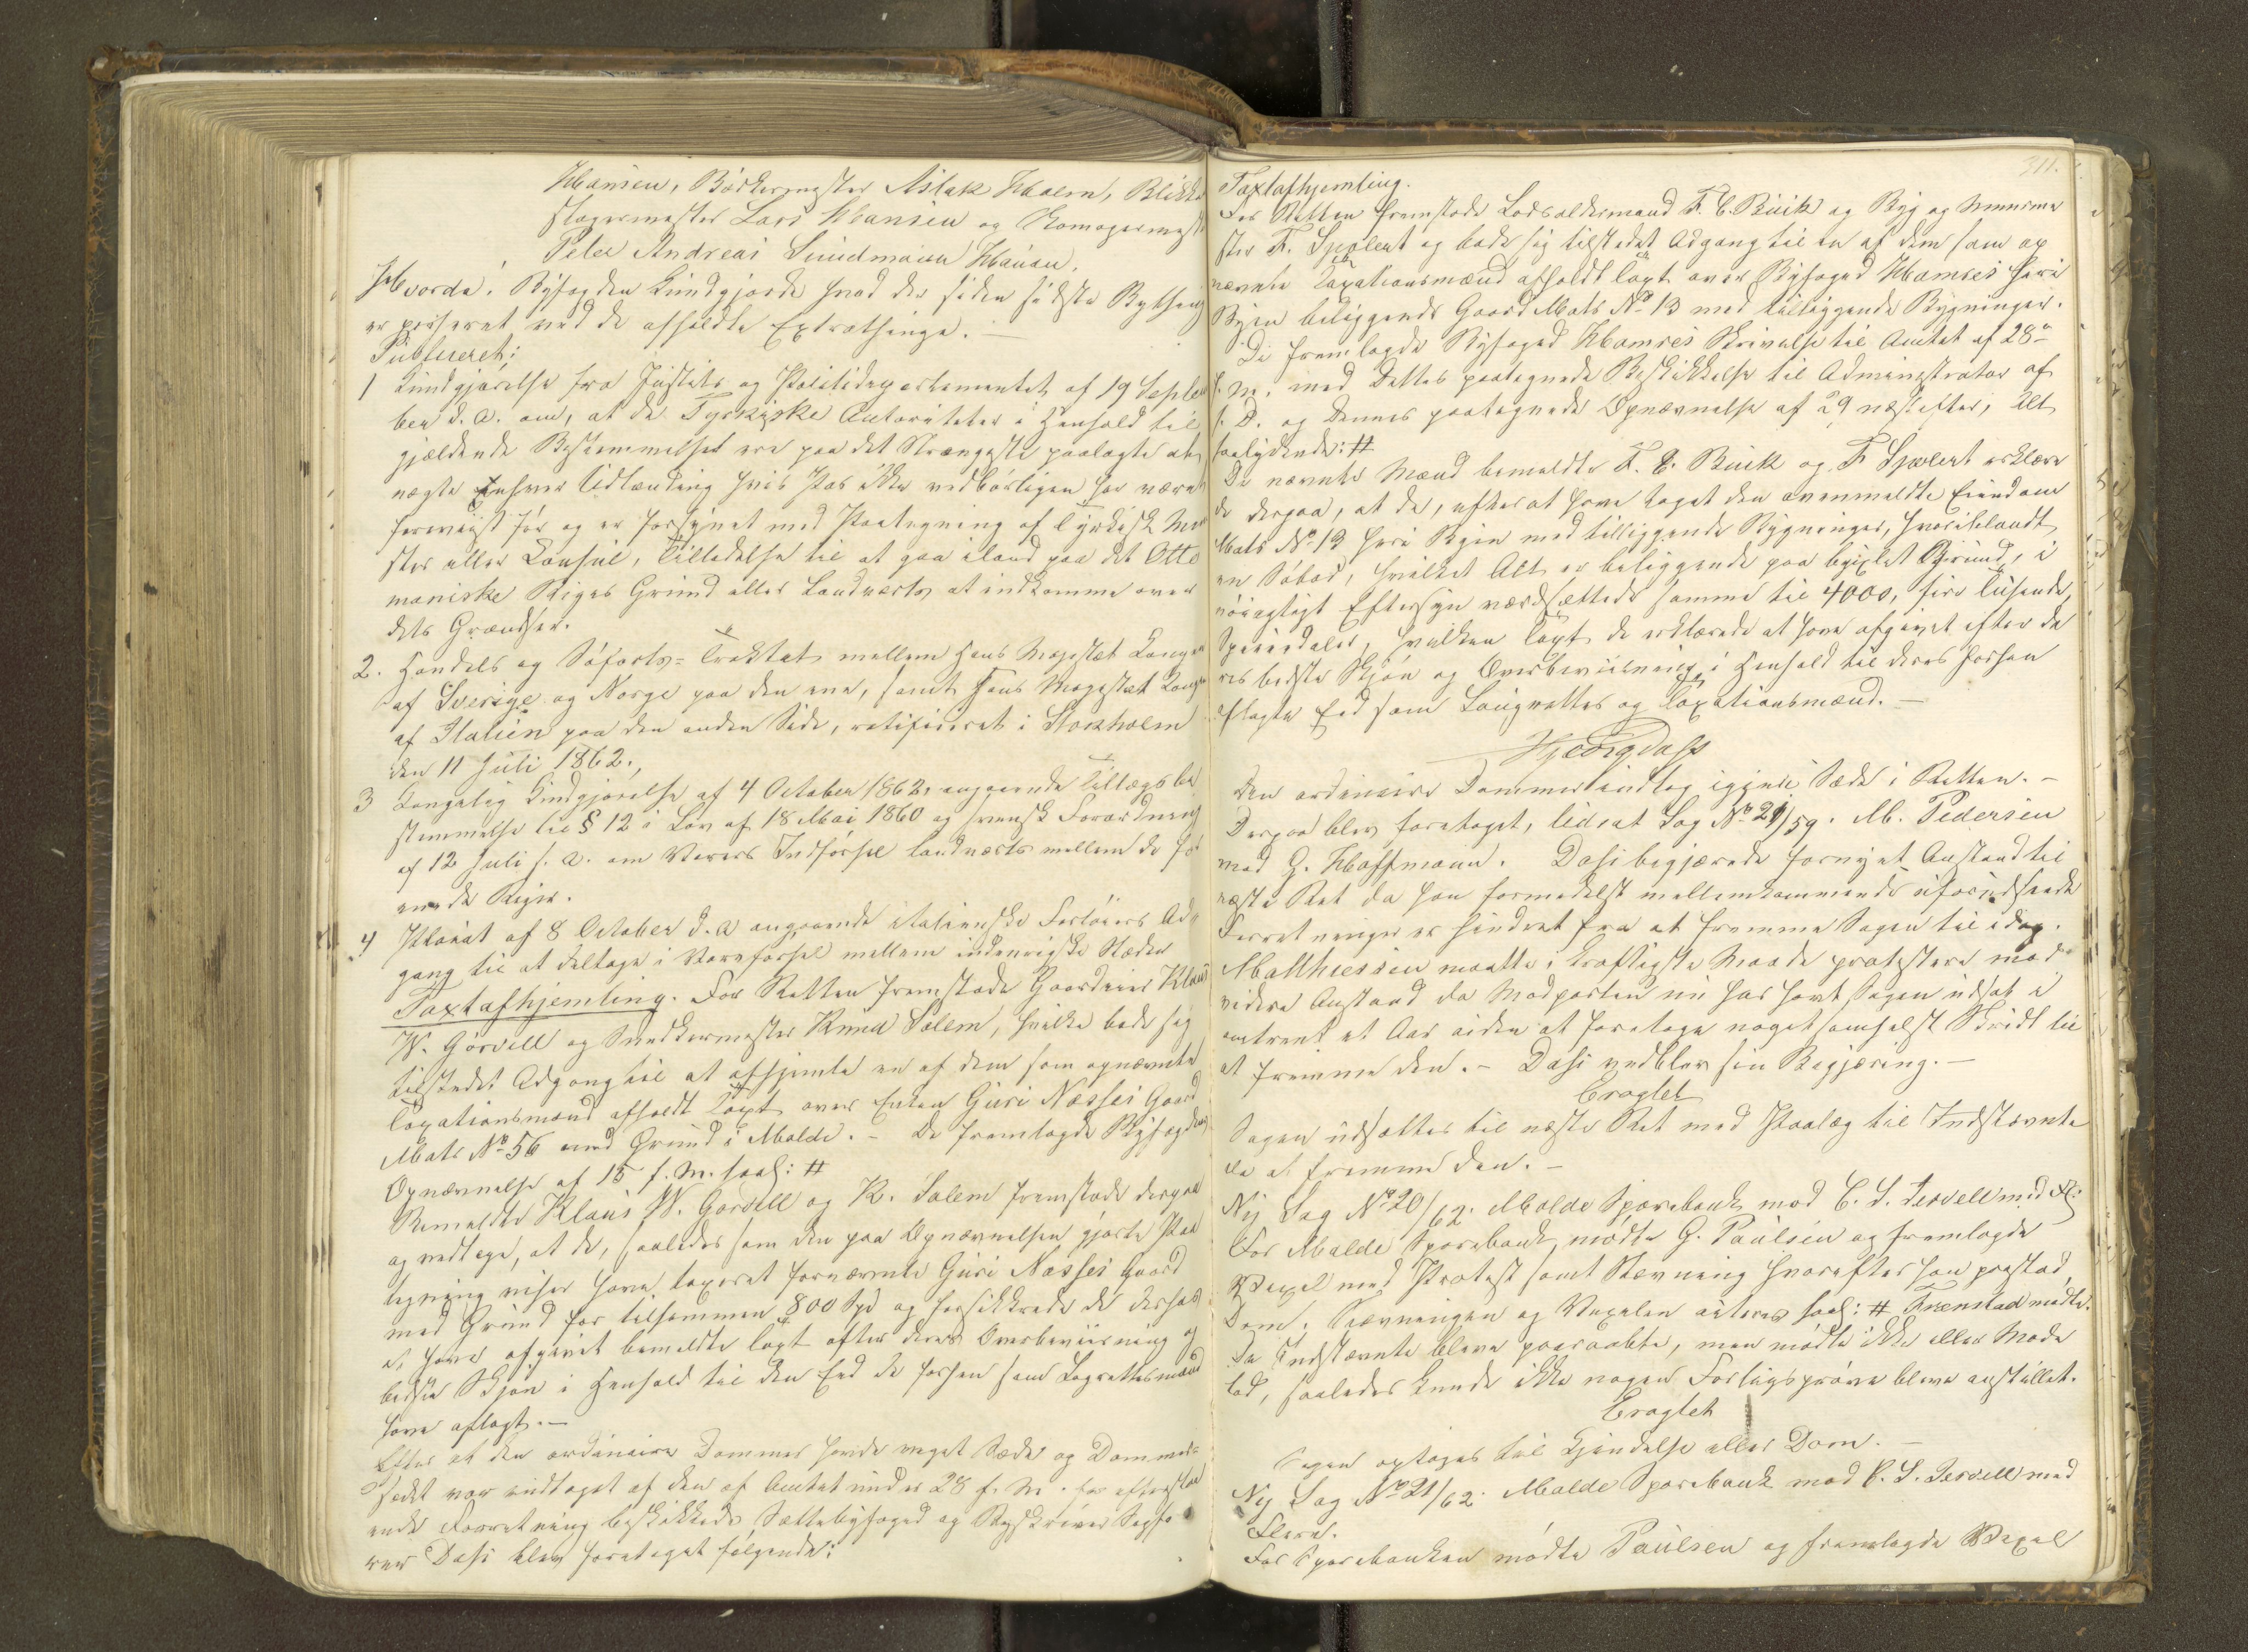 Hansen, Bødkermester Aslak Holm, Blikke
slagermester Lars Hansen og Komagermest
Peter Andreas Sundmann Hansen.
Hvorda: Byfogden kundgjorde hvad der siden sidste Bything
er passeret ved de afholdte Extrathinge. —
Publiceret:
1 Kundgjørelse fra Justits og Politidepartementet af 19 Septem
ber d. A. om, at de Tyrkiske Autoriteter i Henhold til
gjældende Bestemmelser ere paa det Strængeste paalagte at
nægte Enhver Udlænding hvis Pas ikke vedbørligen har været
foreviist for og er forsynet med Paategning af Tyrkisk Mini
ster eller Consul, Tilladelse til at gaa iland paa det Otto
maniske Riges Grund eller Landværts at indkomme over
dets Grændser.
2. Handels og Søfarts-Traktat mellem Hans Majestæt Kongen
af Sverige og Norge paa den ene, samt Hans Majestæt Kongen
af Italien paa den anden Side, ratificeret i Stokholm
den 11 Juli 1862.
3 Kongelig Kundgjørelse af 4 October 1862, angaaende Tillægsbe
stemmelse til § 12 i Lov af 18 Mai 1860 og svensk Forordning
af 12 Juli s. A. om Varers Indførsel landværts mellem de for
enede Riger.
4 Plakat af 8 October d. A angaaende italienske Fartøiers Ad-
gang til at deltage i Vareførsel mellem indenrigske Stæder
Taxtafhjemling. For Retten fremstode Gaardeier Klaus
W. Gørvell og Snedkermester Knud Solem, hvilke bade sig
tilstedet Adgang til at afhjemle en af dem som opnævnte
Taxationsmænd afholdt Taxt over Enken Guri Næsses Gaard
Mats No 56 med Grund i Molde. - De fremlagde Byfogdens
Opnævnelse af 15 f. M. saal: #
Bemeldte Klaus W. Gørvell og K. Solem fremstode derpaa
og vedtoge, at de, saaledes som den paa Opnævnelsen gjorte Paa
tegning viser have taxeret fornævnte Guri Næsses Gaard
med Grund for tilsammen 800 Spd og forsikkrede de derhos
at have afgivet bemeldte Taxt efter deres Overbeviisning og
bedste Skjøn i Henhold til den Eed de forhen som Lagrettesmænd
have aflagt. —
Efter at den ordinaire Dommer havde veget Sæde og Dommer
sædet var indtaget af den af Amtet under 28 f. M. for efterstaa
ende Forretning beskikkede Sættebyfoged og Byskriver Sagfø
rer Dahs blev foretaget følgende:
311.
Taxtafhjemling.
For Retten fremstode Lodsoldermand F. C. Buck og Byg og Muurme
ster F. Sjølert og bade sig tilstedet Adgang til en af dem som op
nævnte Taxationsmænd afholdt Taxt over Byfoged Hamres heri
Byen beliggende Gaard Mats No 13 med tilliggende Bygninger.
De fremlagde Byfoged Hamres Skrivelse til Amtet af 28de
f. M. med Dettes paategnede Beskikkelse til Administrator af
s. D. og Dennes paategnede Opnævnelse af 29 næstefter, Alt
saalydende: #
De nævnte Mænd bemeldte F. C. Buck og F Sjølert erklære
de derpaa, at de, efterat have taget den ovenmeldte Eiendom
Mats No 13 heri Byen med tilliggende Bygninger, hvoriblandt
en Søbod, hvilket Alt er beliggende paa bygslet Grund, i
nøiagtigt Eftersyn værdsættede samme til 4000, fire tusende,
Speciedaler, hvilken Taxt de erklærede at have afgivet efter de
res bedste Skjøn og Overbeviisning i Henhold til deres forhen
aflagte Eed som Laugrettes og Taxationsmænd. —
Den ordinaire Dommer indtog igjen Sæde i Retten. -
Derpaa blev foretaget, udsat Sag No 21/59. M. Pedersen
mod G. Hoffmann. Dahs begjærede fornyet Anstand til
næste Ret da han formedelst mellemkommende uforudseede
Forretninger er hindret fra at fremme Sagen til idag.
Matthiessen maatte i kraftigste Maade protestere mod
videre Anstand da Modparten nu har havt Sagen udsat i
omtrent et Aar uden at foretage noget somhelst Skridt til
at fremme den. - Dahs vedblev sin Begjæring. —
Eragtet
Sagen udsættes til næste Ret med Paalæg til Indstævnte
da at fremme den. —
Ny Sag No 20/62. Molde Sparebank mod C. S. Jervell med Fl:
For Molde Sparebank mødte G. Paulsen og fremlagde
Vexel med Protest samt Stævning hvorefter han paastod
Dom. Stævningen og Vexelen acteres saal: # Frenstad mødte.
De Indstævnte bleve paaraabte, men mødte ikke eller Møde
lod, saaledes kunde ikke nogen Forligsprøve bleve anstillet.
Eragtet
Sagen optages til Kjendelse eller Dom. —
Ny Sag No 21/62. Molde Sparebank mod C. S. Jervell med
Flere.
For Sparebanken mødte Paulsen og fremlagde Vexel